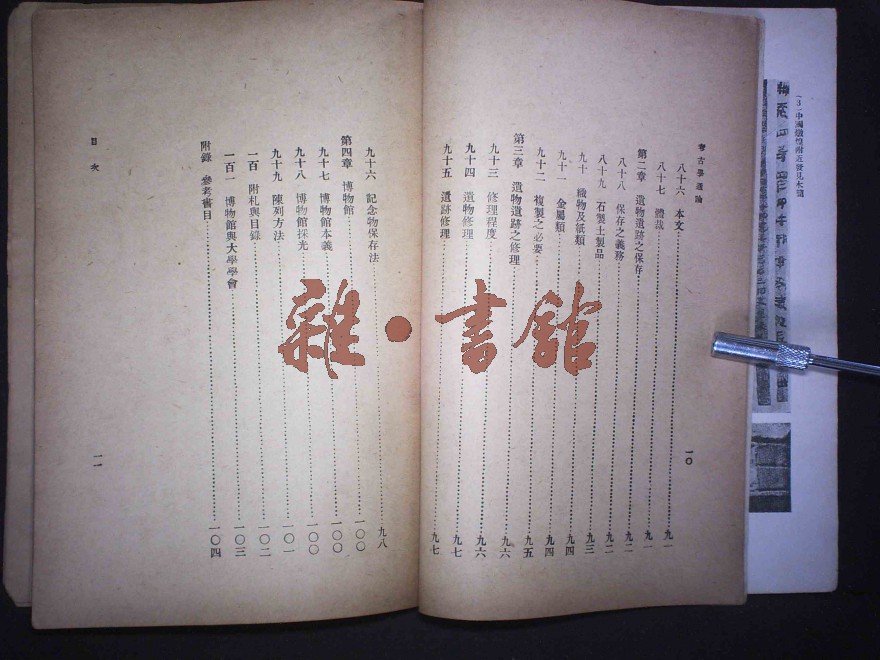 中國燉煌附近發見木簡
考古學通論
八十六 本文……九一
八十七 體裁……九一
第二章 遺物遺跡之保存……九二
八十八 保存之義務……九二
八十九 石製土製品……九三
九十 織物及紙類……九四
九十一 金屬類……九四
九十二 複製之必要……九五
第三章 遺物遺跡之修理……九六
九十三 修理程度……九六
九十四 遺物修理……九七
九十五 遺跡修理……九七
一〇
九十六 記念物保存法……九八
第四章 博物館……一〇〇
九十七 博物館本義……一〇〇
九十八 博物館採光……一〇〇
九十九 陳列方法……一〇一
一百 附札與目錄……一〇二
一百一 博物館與大學學會……一〇三
附錄 參考書目……一〇四
目次
一一
雜·書館